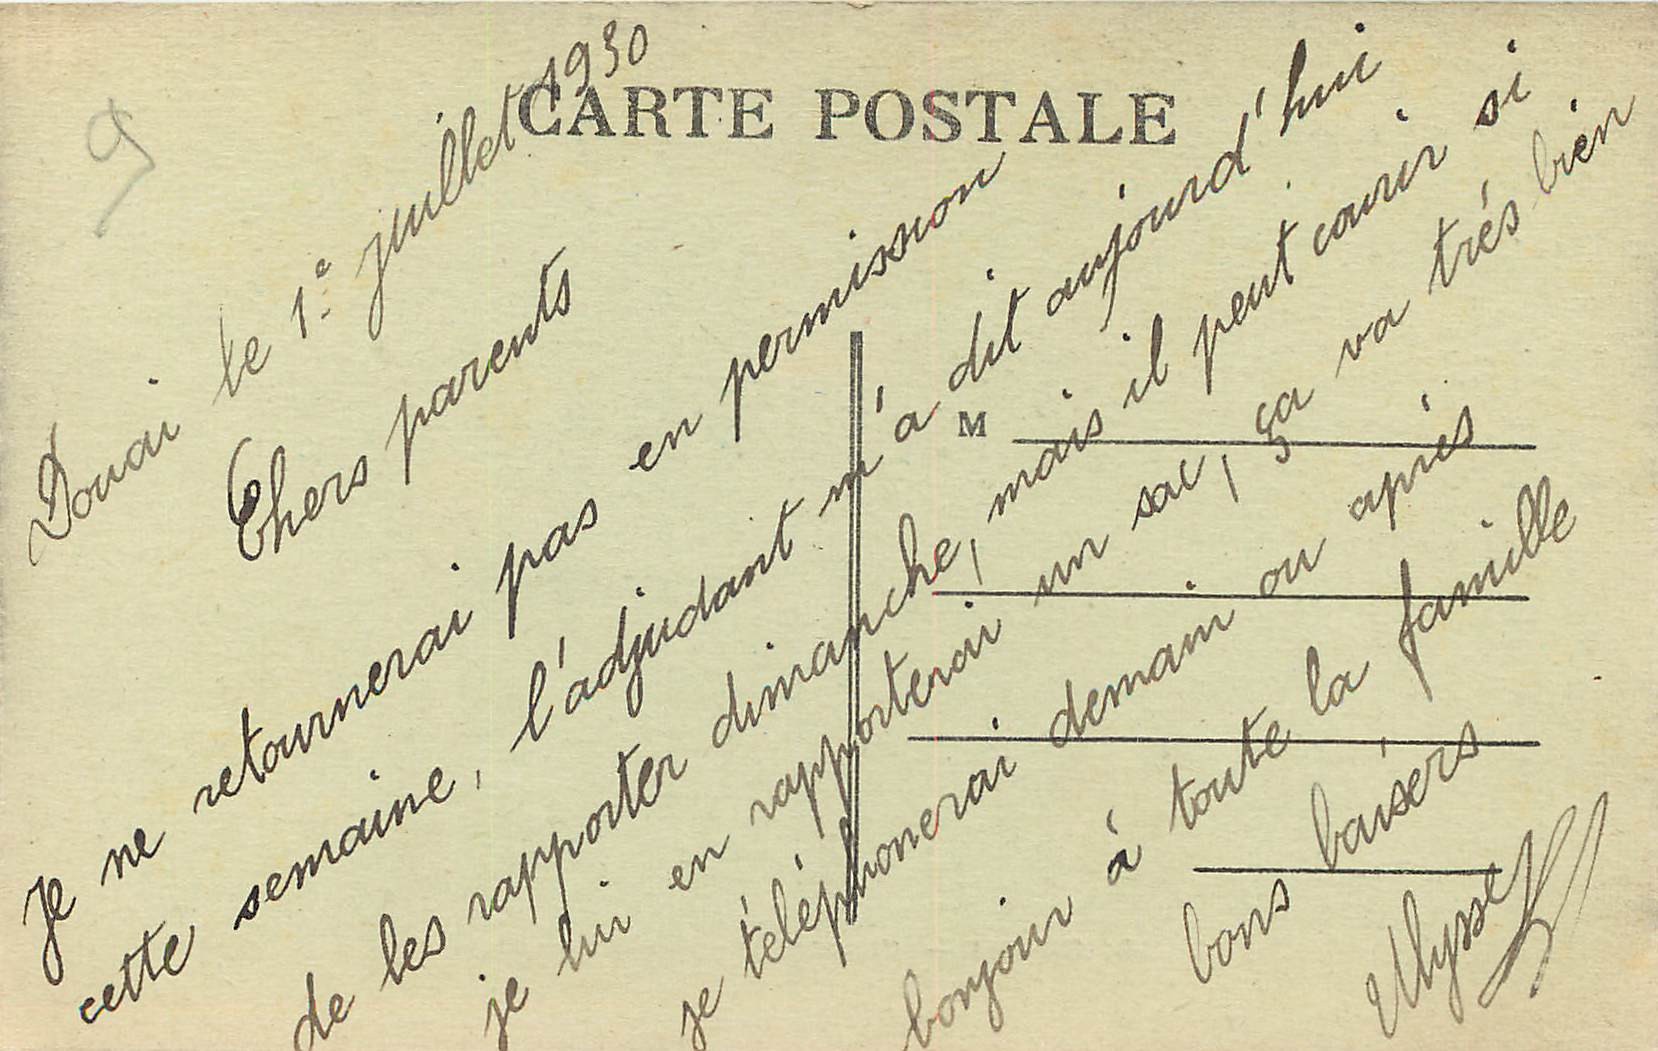 9
CARTE POSTALE
Douai le 1e juillet 1930
Chers parents
Je ne retournerai pas en permission
cette semaine, l'adjudant m'a dit aujourd'hui
de les rapporter dimanche, mais il peut courir si
je lui en rapporterai un sac, ça va trés bien
je téléphonerai demain ou aprés
bonjour à toute la famille
bons baisers
Ulysse
M